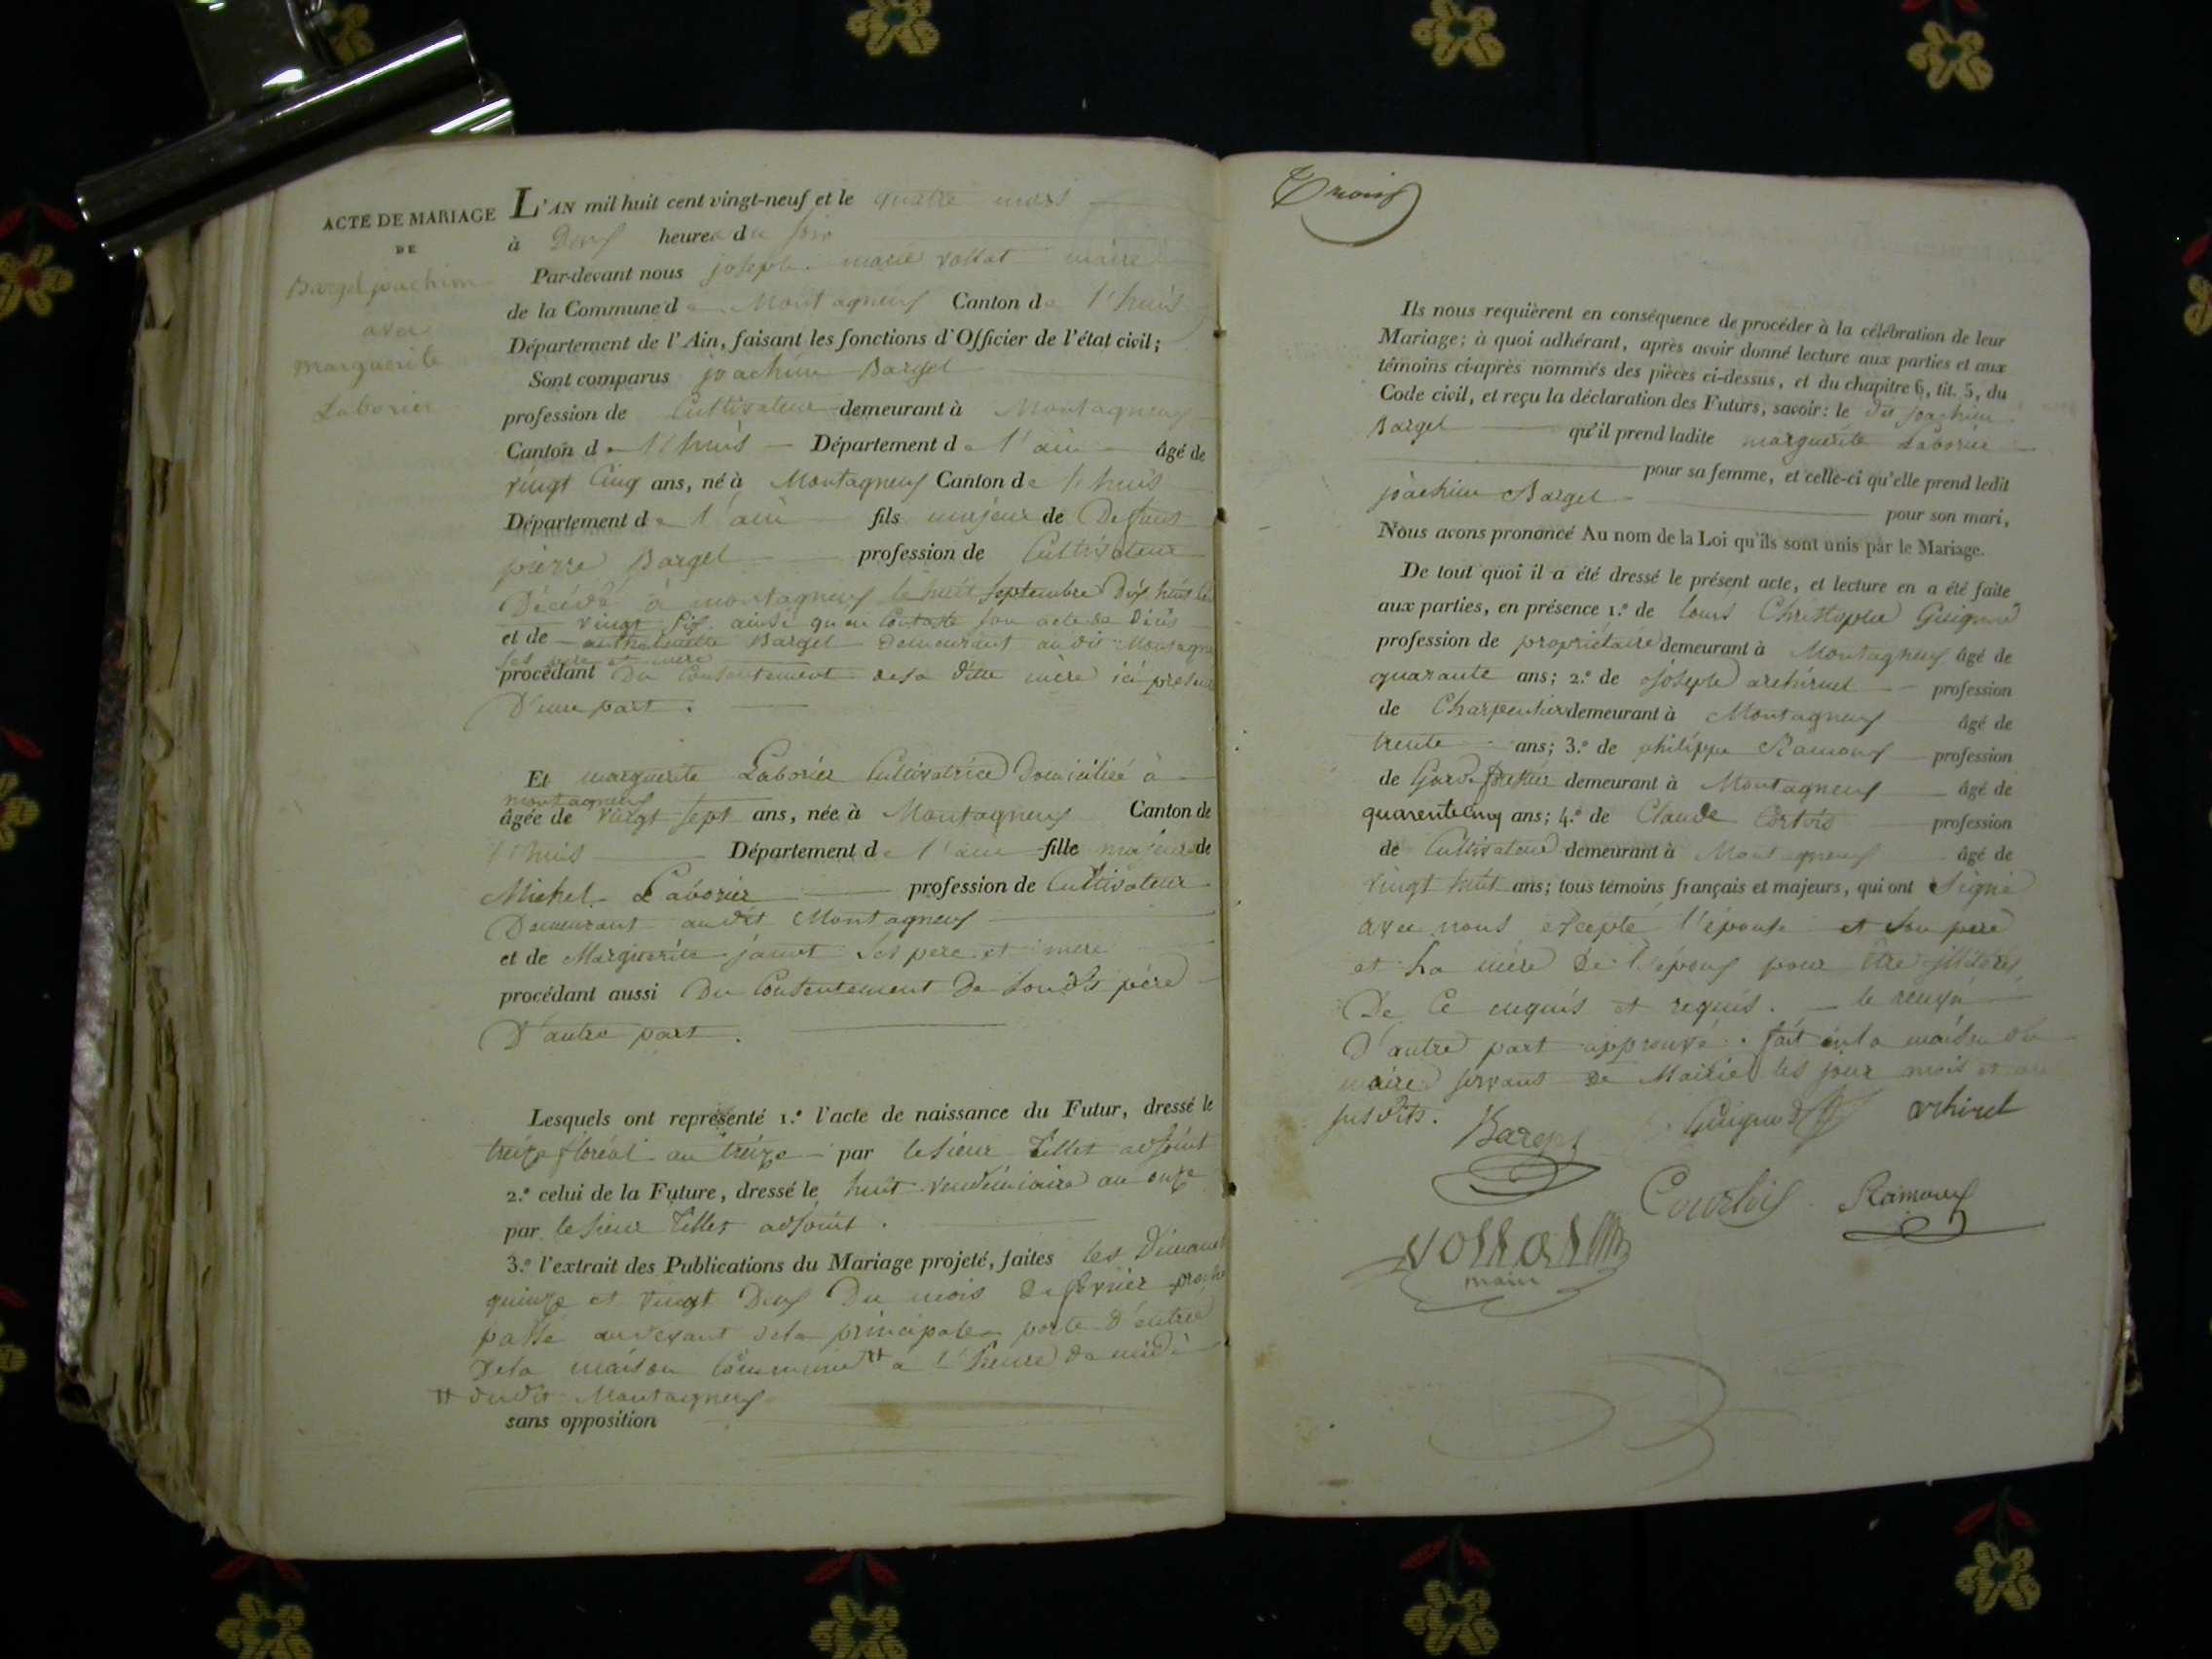 ACTE DE MARIAGE
DE
Bargel joachim
avec
marguerite
Laborier
L'AN mil huit cent vingt-neuf et le quatre mars
à Deux heures du soir
Par-devant nous joseph marie vollat maire
de la Commune de Montagneux Canton de l'huis
Département de l'Ain, faisant les fonctions d'Officier de l'état civil;
Sont comparus joachim Bargel
profession de Cultivateur demeurant à Montagneux
Canton de l'huis Département de l'ain âgé de
vingt Cinq ans, né à Montagneux Canton de l'huis
Département de l'ain fils majeur de Defunt
pierre Bargel profession de Cultivateur
Décédé à montagneux le huit septembre Dix huit cent
vingt six ainsi qu'en Conste son acte de Décès
et de Bargel Demeurant au dit Montagneux
ses père et mère
procédant Du Consentement de sa ditte mère ici présente
D'une part.
Et marguerite Laborier Cultivatrice Domiciliée à
montagneux
âgée de vingt sept ans, née à Montagneux Canton de
l'huis Département de l'ain fille majeure de
Michel Laborier profession de Cultivateur
Demeurant audit Montagneux
et de Marguerite janet ses père et mère
procédant aussi Du Consentement De Son dit père
D'autre part.
Lesquels ont représenté 1.º l'acte de naissance du Futur, dressé le
treize floréal an treize par le sieur Tillet adjoint
2.º celui de la Future, dressé le huit vendémiaire an onze
par le sieur Tillet adjoint.
3.º l'extrait des Publications du Mariage projeté, faites les Dimanches
quinze et vingt Deux Du mois de février proche
passé au devant de la principale porte D'entrée
de la maison Commune # à l'heure de midi
# dudit Montagneux
sans opposition
Trois
Ils nous requièrent en conséquence de procéder à la célébration de leur
Mariage; à quoi adhérant, après avoir donné lecture aux parties et aux
témoins ci-après nommés des pièces ci-dessus, et du chapitre 6, tit. 5, du
Code civil, et reçu la déclaration des Futurs, savoir: le dit joachim
Bargel qu'il prend ladite marguerite Laborier
pour sa femme, et celle-ci qu'elle prend ledit
joachim Bargel pour son mari,
Nous avons prononcé Au nom de la Loi qu'ils sont unis par le Mariage.
De tout quoi il a été dressé le présent acte, et lecture en a été faite
aux parties, en présence 1.º de louis Christophe Guignod
profession de propriétaire demeurant à Montagneux âgé de
quarante ans; 2.º de joseph profession
de Charpentier demeurant à Montagneux âgé de
trente ans; 3.º de philippe Ramoux profession
de Garde forestier demeurant à Montagneux âgé de
quarente Cinq ans; 4.º de Claude Cortois profession
de Cultivateur demeurant à Montagneux âgé de
vingt huit ans; tous témoins français et majeurs, qui ont Signé
avec nous excepté l'épouse et son père
et la mère de l'époux pour être illitérés
De Ce enquis et requis. le renvoi
D'autre part approuvé. fait en la maison du
maire servant de Mairie les jour mois et an
susdits.
Bargel Guignod arhinet
Courtois Ramoux
vollat
maire